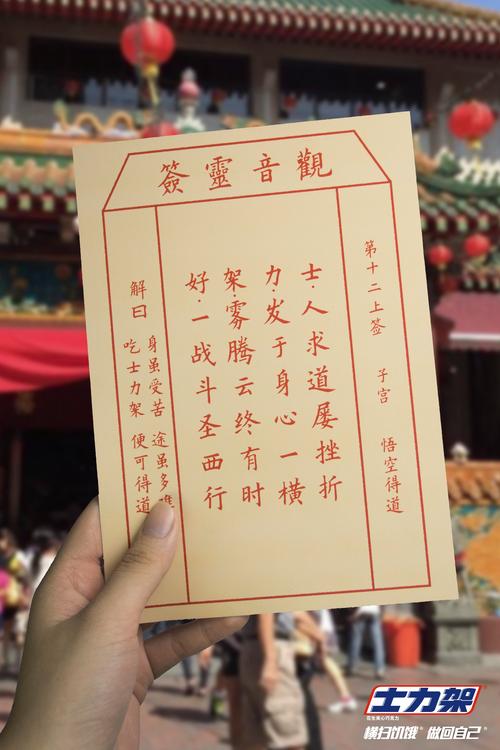 觀音靈簽
第十二上签 子宫 悟空得道
士·人求道屡挫折
力·发于身心一横
架·雾腾云终有时
好·一战斗圣西行
解曰
身虽受苦 途虽多
吃士力架 便可得道
士力架
花生夹心巧克力
横扫饥饿® 做回自己®